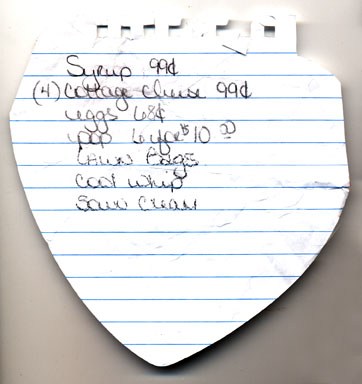 Syrup 99¢
(4) Cottage cheese 99¢
eggs 68¢
pop 6 for $10 00
Lawn Bags
cool whip
sour cream